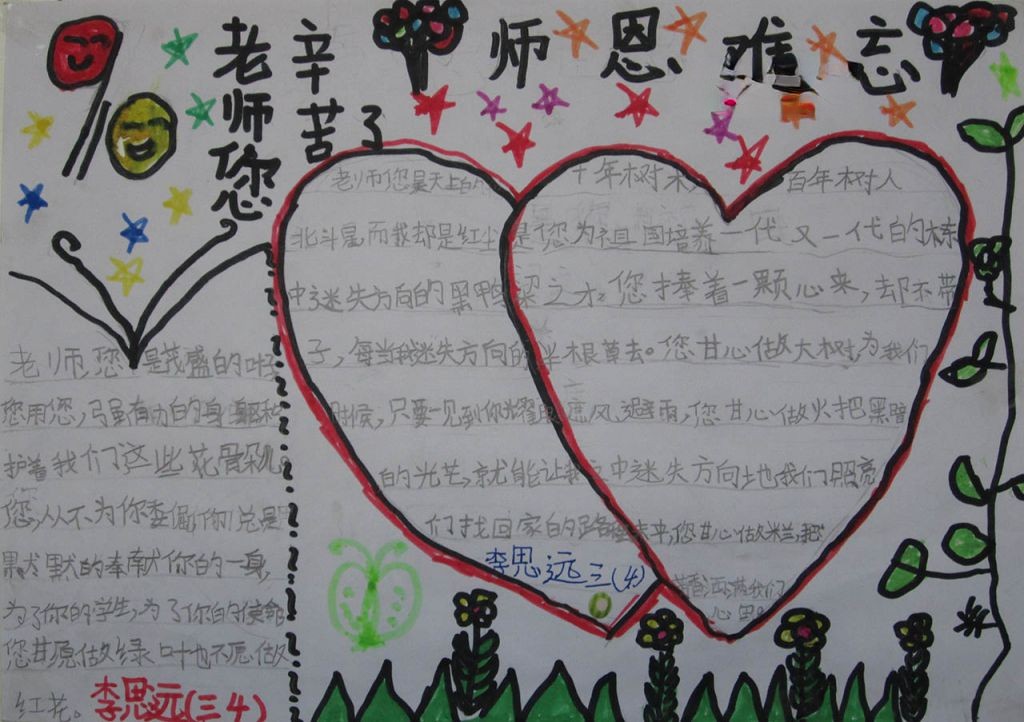 老师您
辛苦了
师恩难忘
老师您是茂盛的
您用您,有力的身躯和
护着我们这些花骨朵儿。
您,从不为你
默默的奉献你的一身,
为了你的学生,为了你的使命
您甘愿做绿叶也不愿做
红花。
李思远(三4)
老师您是天上的
北斗星而我却是红尘
中迷失方向的黑鸭
子,每当我迷失方向的
时候,只要一见到你
的光芒,就能让我
们找回家的路
李思远三(4)
十年树木 百年树人
是您为祖国培养一代又一代的栋
梁之才。您捧着一颗心来,却不带
半根草去。您甘心做大树,为我们
遮风避雨,您甘心做火把黑暗
中迷失方向地我们照亮
未来,您甘心做兰,把
清香洒满我们
心里